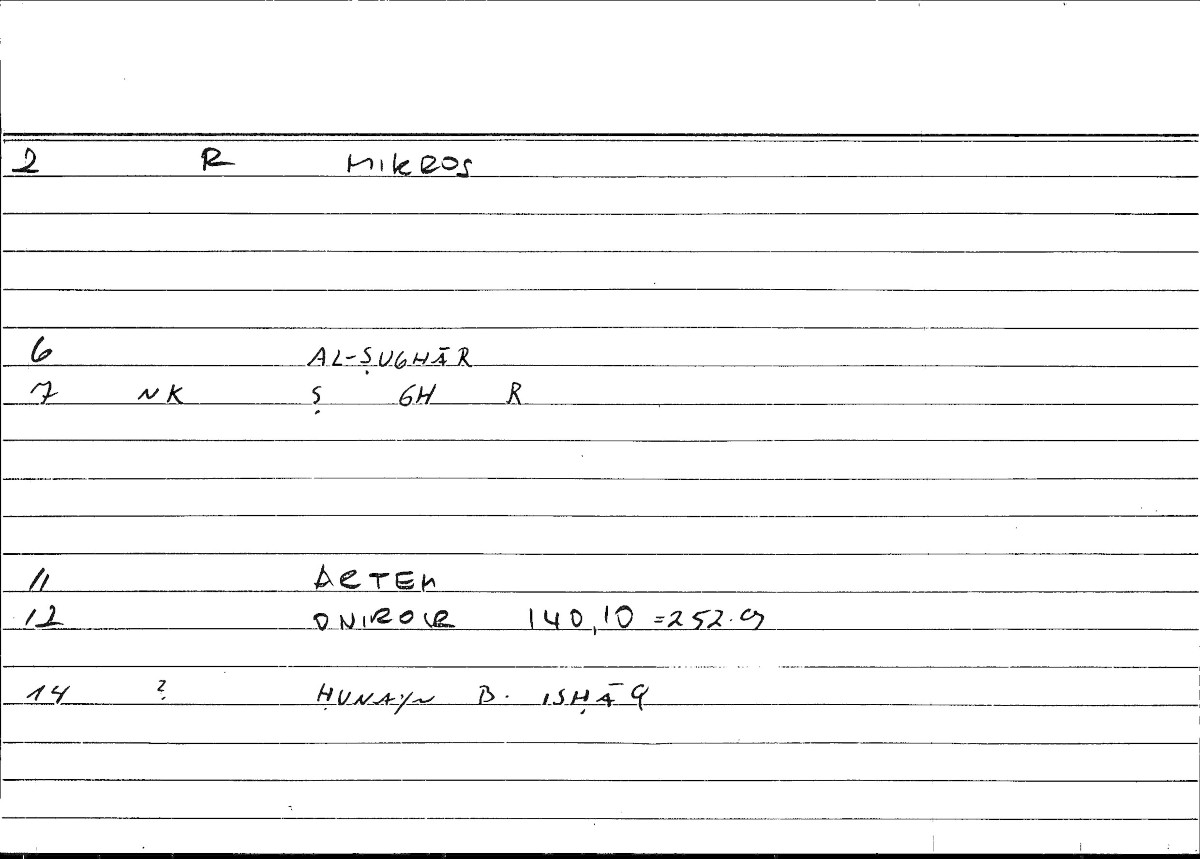 2 R MIKROS
6 AL-ṢUGHĀR
7 NK Ṣ GH R
11 ARTEM
12 ONIROKR 140,10 =252.9
14 ? ḤUNAYN B. ISḤĀQ